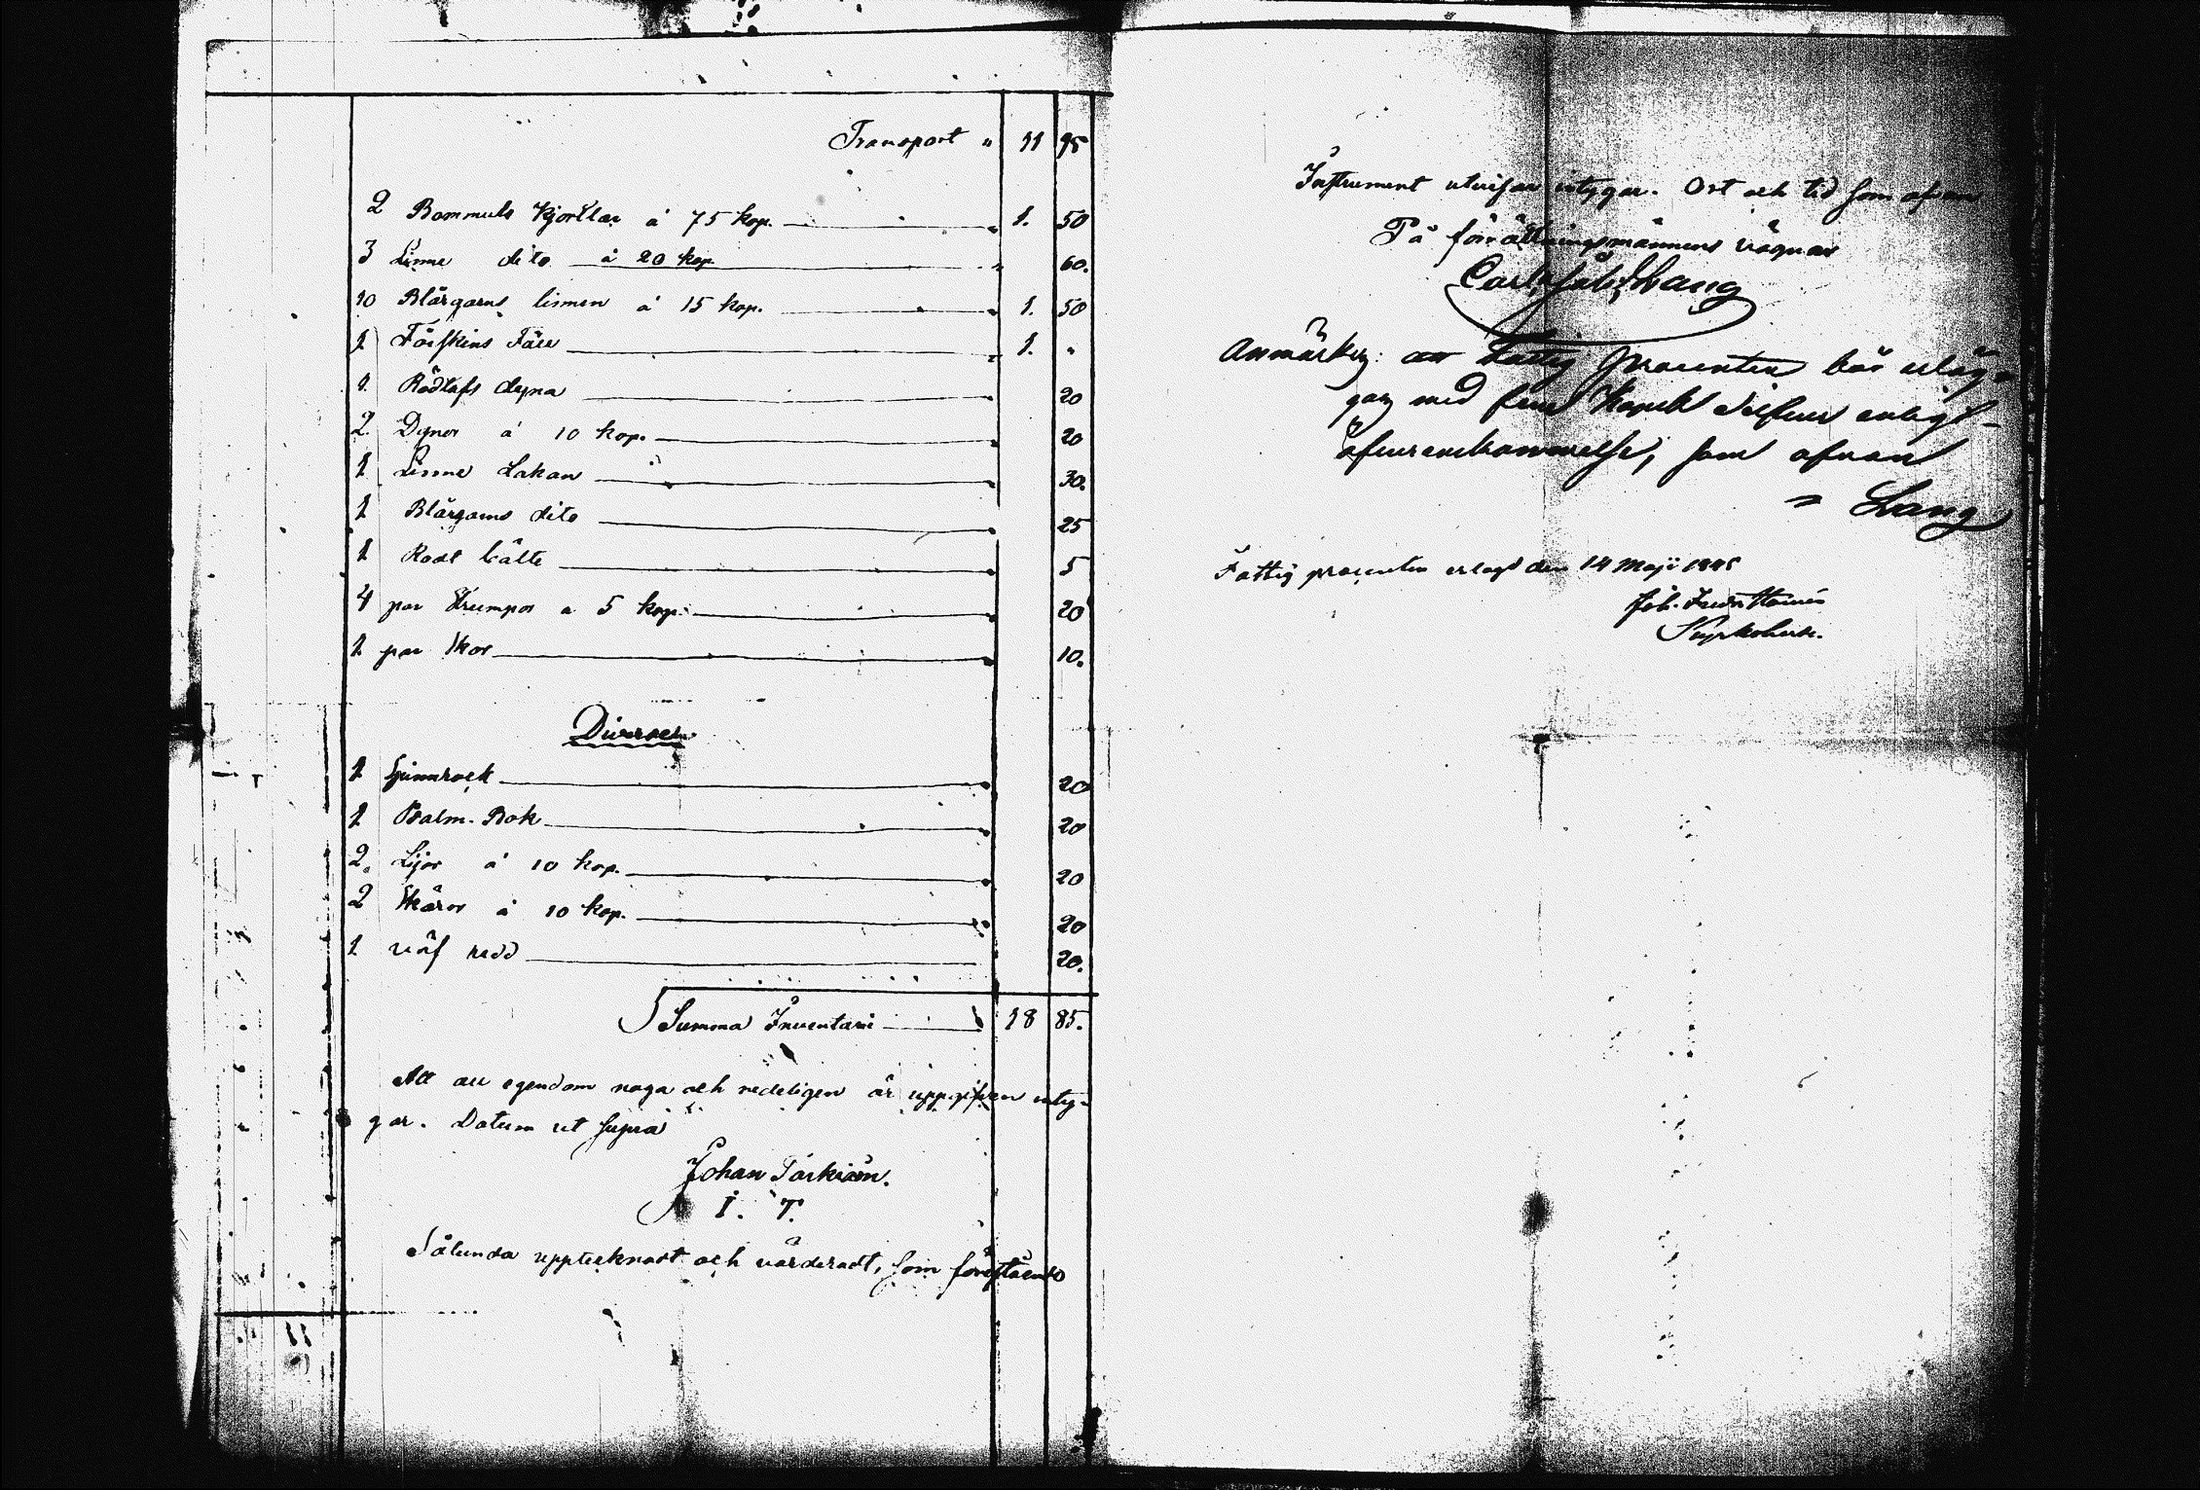 Transport " 11 95
2 Bommuls Kjortlar á 75 kop. " 1. 50
3 Linne dito á 20 kop. " 60.
10 Blårgarns linnen á 15 kop. " 1. 50
1 Fårskins Fäll " 1. "
1. Rödlafs dyna " 20
2. Dynor á 10 kop. " 20
1 Linne Lakan " 30.
1 Blårgarns dito " 25
1 Rödt bälte " 5
4 par Strumpor a 5 kop. " 20
1 par Skor " 10.
Diverser.
1 Spinnrock " 20
1 Psalm-Bok " 20
2. Lijor á 10 kop. " 20
2 Skäror á 10 kop. " 20
1 väf redd 20.
Summa Inventarii 18 85.
Att all egendom noga och redeligen är uppgifven inty-
gar. Datum ut supra
Johan Parkiain.
I. T.
Sålunda upptecknadt och värderadt, som förestående
Instrument utvisar intygar. Ort och tid som ofvan
På förrättningsmännens vägnar
Carl Lang
Anmärkn: att Fattig procenten bör erläg-
gas med fem Kopek Silfver enligt
öfverenskommelse, som ofvan
" Lang
Fattig procenten erlagd den 14 Maji
Joh.